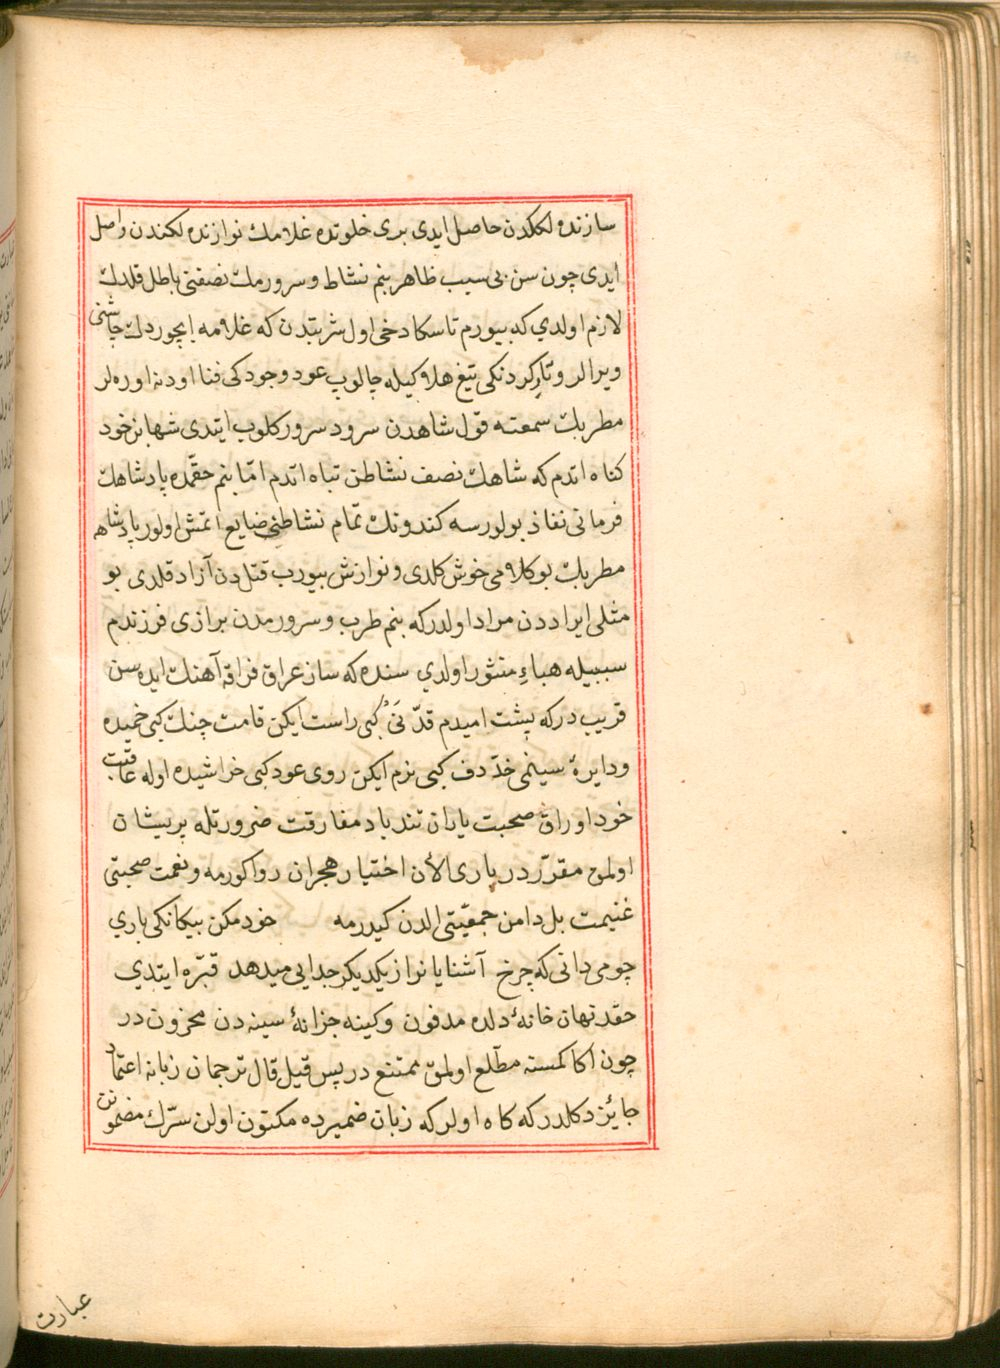 سازنده لککدن حاصل ایدی بری خلوتده غلامك نوازنده لکندن واصل
ایدی چون سن بی سبب ظاهر بنم نشاط و سرورمك نصفنی باطل قلدك
لازم اولدي که بیورم تا سکا دخی اول شربتدن که غلامه ایچوردك چاشنی
ویرالر و تار کردنکی تیغ هلاکیله چالوب عود وجودکی فنا اودنه اوره لر
مطربك سمعنه قول شاهدن سرود سرور کلوب ایتدی شها بن خود
کناه اتدم که شاهك نصف نشاطن تباه اتدم امّا بنم حقمده پادشاهك
فرمانی نفاذ بولورسه کندونك تمام نشاطنی ضایع اتمش اولور پادشاه
مطربك بو کلامی خوش کلدی و نوازش بیورب قتلدن آزاد قلدی بو
مثلی ایراددن مراد اولدرکه بنم طرب و سرورمدن برازی فرزندم
سببیله هباءِ منثور اولدي سنده که ساز عراق فراقه آهنك ایده سن
قریب درکه پشت امیدم قدّ نَیْ کبی راست ایکن قامت چنك کبی خمیده
و دایرۀ سینمی خدّ دف کبی نرم ایکن روی عود کبی خراشیده اوله عاقبت
خود اوراق صحبت یاران تندباد مفارقت ضرورتله پریشان
اولمق مقرّر در باری الأن اختیار هجران روا کورمه و نعمت صحبتی
غنیمت بل دامن جمعیّتی الدن کیدرمه خود مکن بیکانکی باري
چو می دانی که چرخ آشنایانرا از یکدیکر جدایی میدهد قبّره ایتدي
حقد نهان خانۀ دلده مدفون و کینه خزانۀ سینه دن مخزون در
چون اکا کمسنه مطّلع اولمق ممتنع در پس قیل قال ترجمان زبانه اعتماد
جائز دکلدر که کاه اولرکه زبان ضمیرده مکتون اولن سرّك مضمونن
عبارت